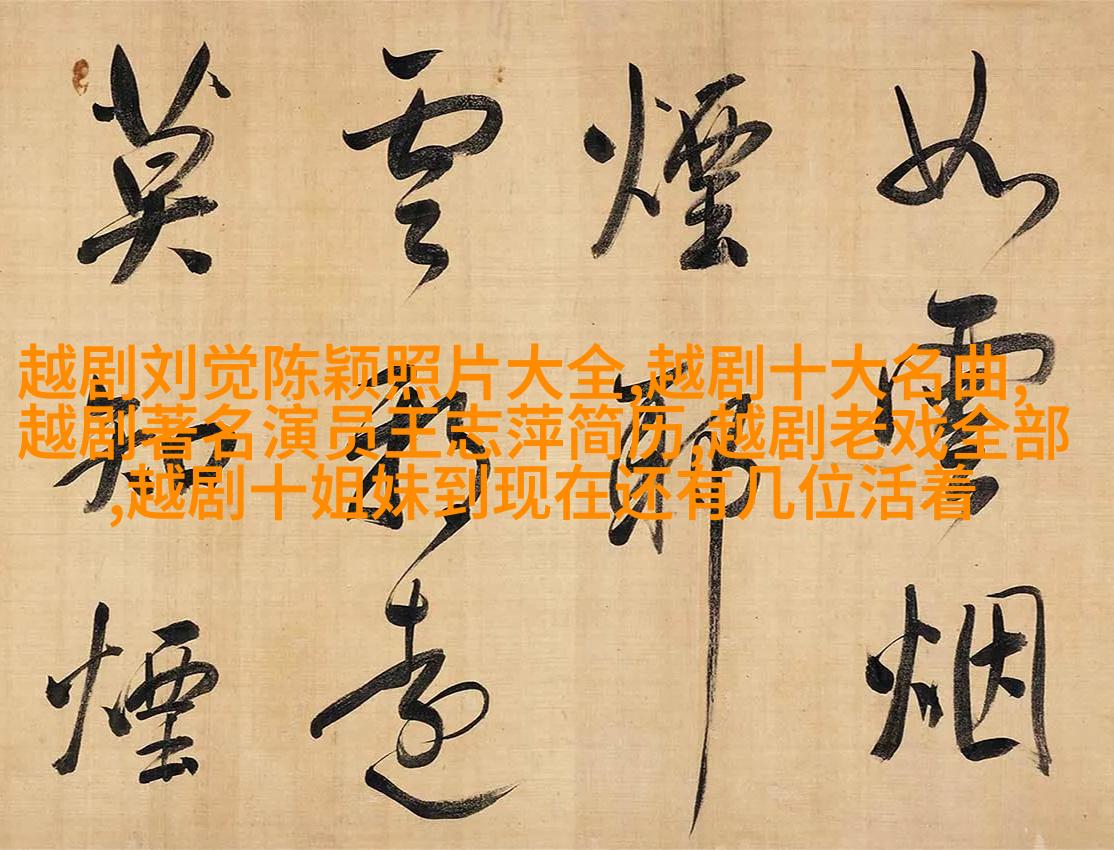 越剧刘觉陈颖照片大全,越剧十大名曲,
越剧著名演员王志萍简历,越剧老戏全部
,越剧十姐妹到现在还有几位活着
如雲烟
煙
雲
莫知煙